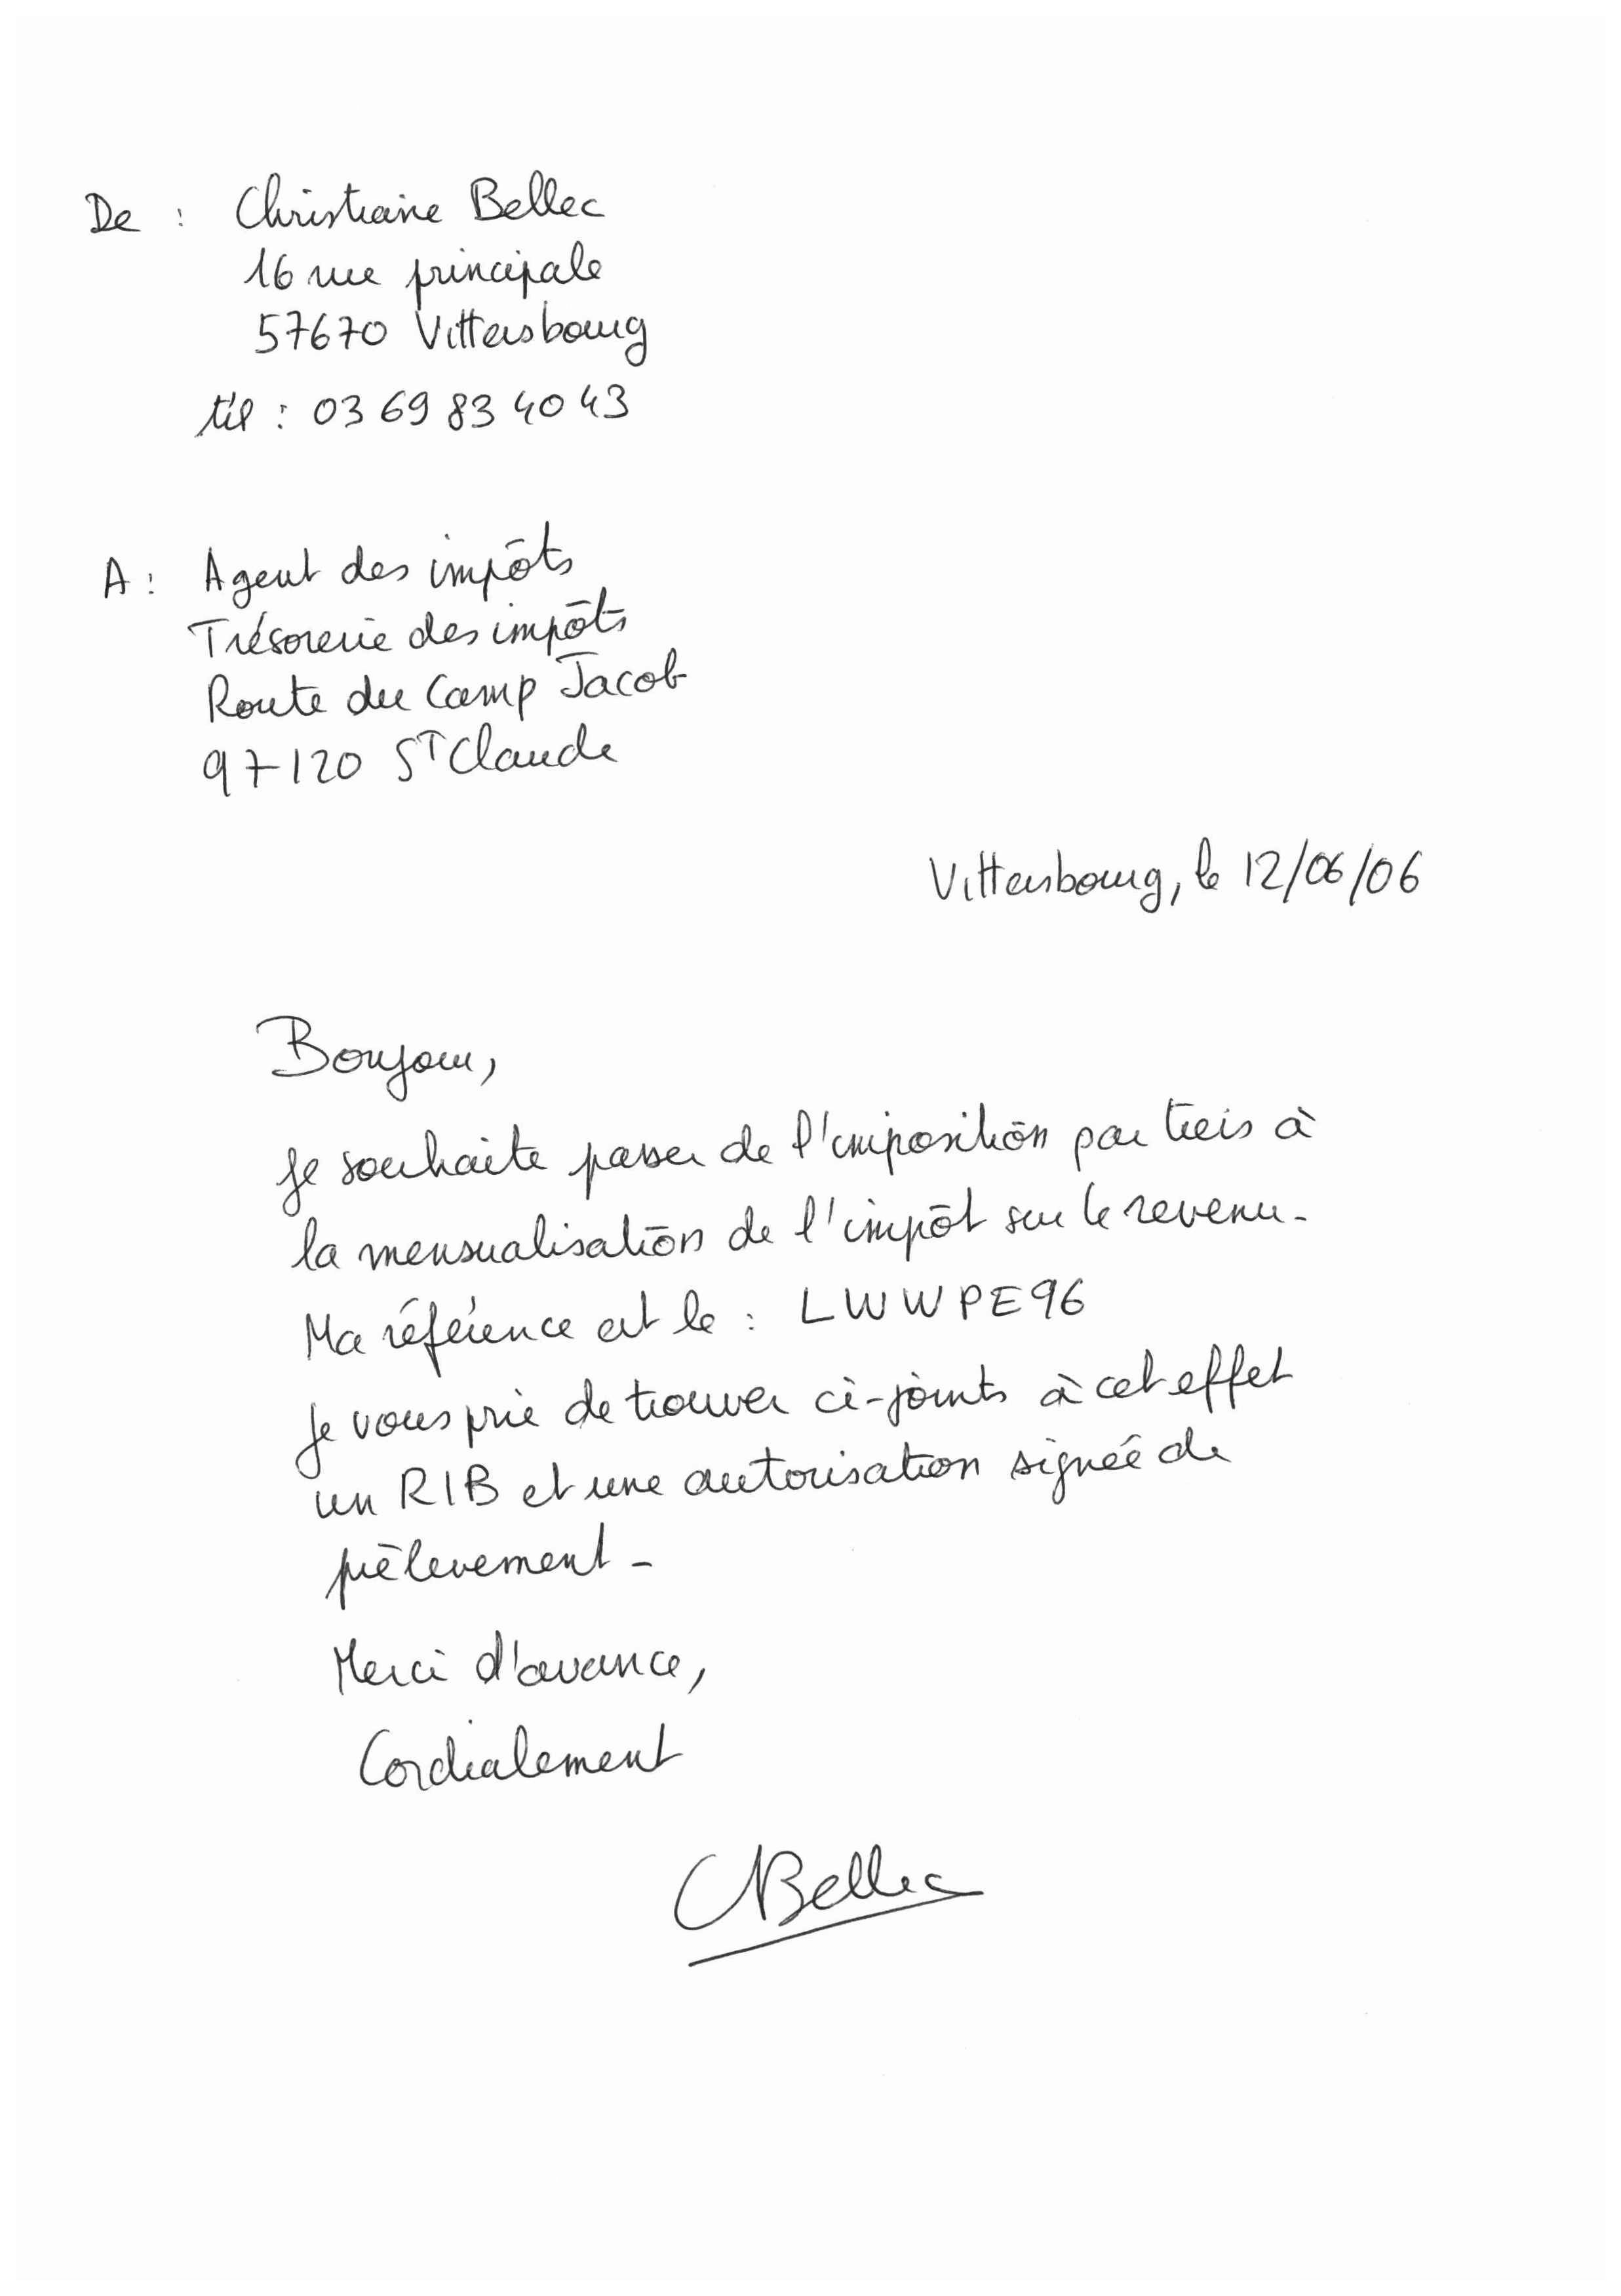 De : Christiane Bellec
16 rue principale
57670 Vittersbourg
tél : 03 69 83 40 43
A : Agent des impôts
Trésorerie des impôts
Route du Camp Jacob
97120 ST Claude
Vittersbourg, le 12/06/06
Bonjour,
Je souhaite passer de l'imposition par tiers à
la mensualisation de l'impôt sur le revenu.
Ma référence est le : LWWPE96
Je vous prie de trouver ci-joints à cet effet
un RIB et une autorisation signée de
prélevement.
Merci d'avance,
Cordialement
CBellec